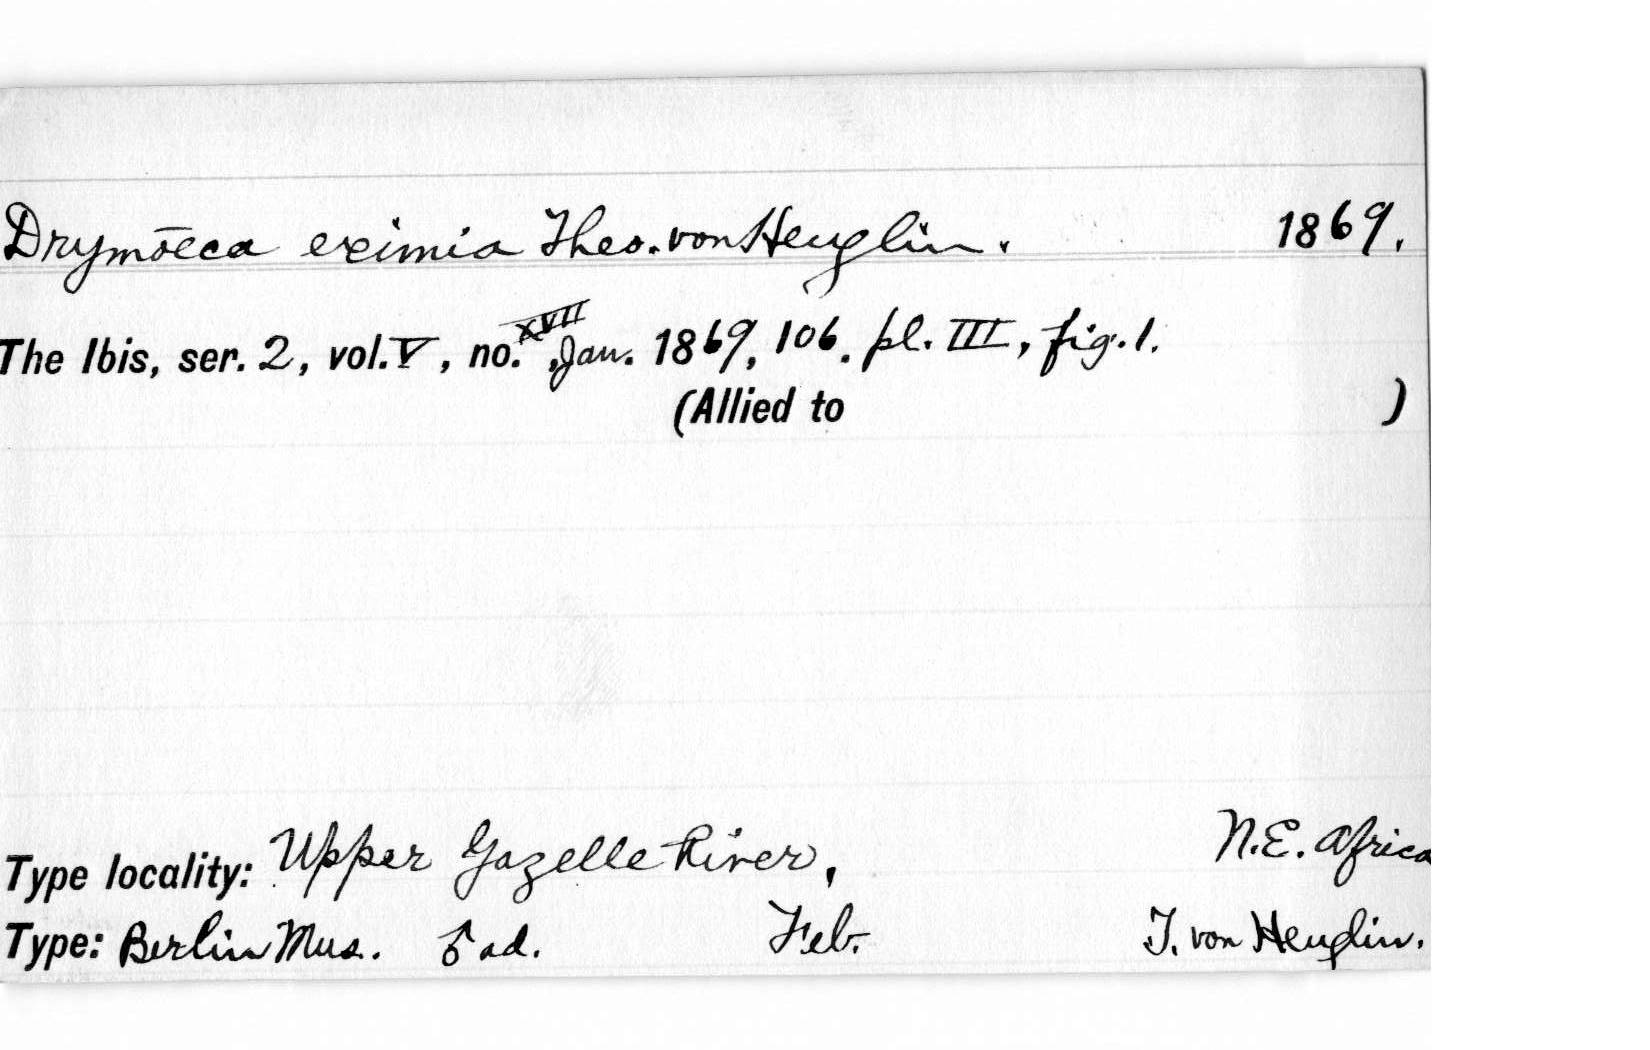 Drymōeca eximia Theo. von Heuglin. 1869.
The Ibis, ser. 2, vol. V, no. XVII, Jan. 1869, 106. pl. III, fig. 1.
(Allied to )
Type locality: Upper Gazelle River, N.E. Africa
Type: Berlin Mus. ♂ ad. Feb. T. von Heuglin.